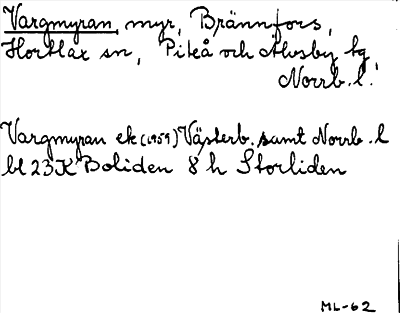 Vargmyran, myr, Brännfors,
Hortlax sn, Piteå och Älvsby tg,
Norrb. l.
Vargmyran ek (1959) Västerb. samt Norrb. l
bl 23 K Boliden 8 h Storliden
ML-62